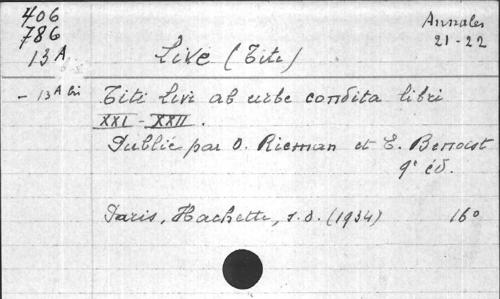 406
786
13 A
Annales
21-22
Live (Tite)
- 13 A bis
Titi Livi ab urbe condita libri
XXI - XXII.
Publié par O. Rieman et E. Benoist
9e éd.
Paris, Hachette, s.d. (1934) 16°